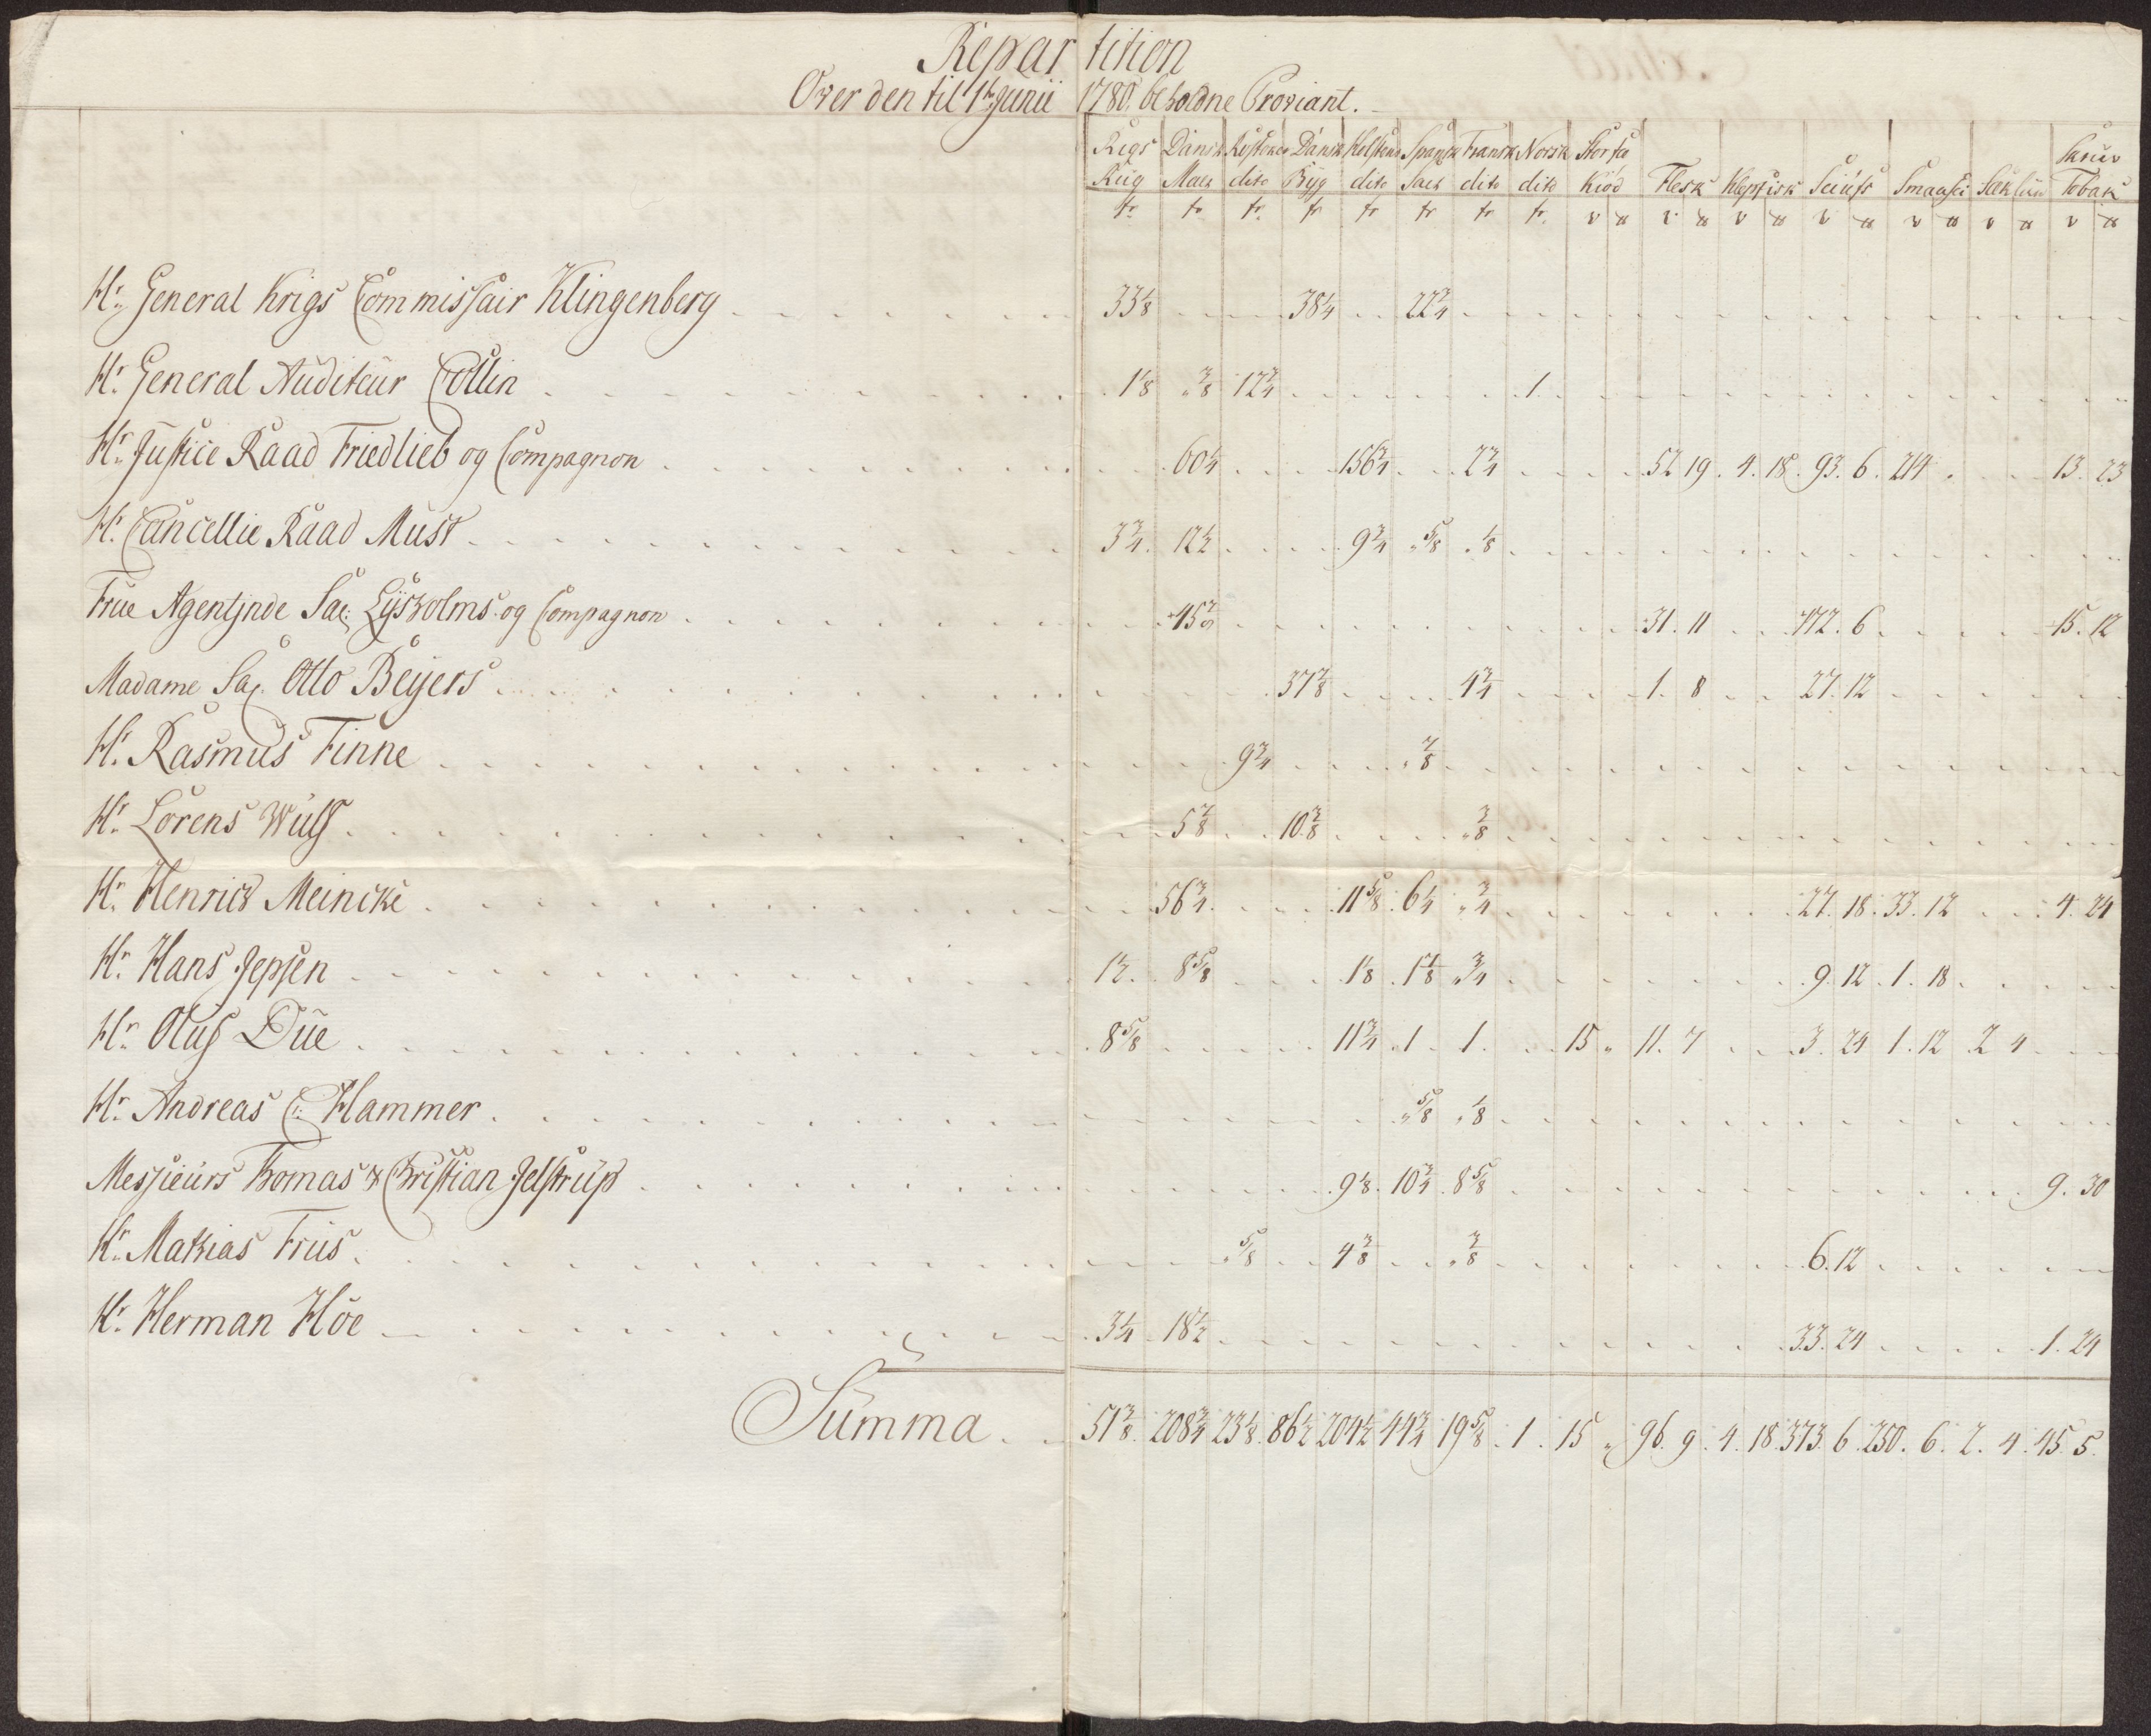 Repartition
Over den til 1te Junii 1780 beholdne Proviant.
Rigs Dansk Holstensk Dansk Holstens Spansk Fransk Norsk Storfæ
Rug Malt dito Byg dito Salt dito dito Kiød Flesk Klepfisk Smaasei Tobak
Hr. General Krigs Commissair Klingenberg 33 1/8 38 1/4 22 3/4
Hr. General Auditeur Collin 1 1/8 „ 3/8 12 3/4 1
Hr. Justice Raad Friedlieb og Compagnon 60 1/4 156 3/4 2 3/4 52 19 4 18 93 6 214 13 23
Hr. Cancellie Raad Must 3 3/4 12 1/2 9 3/4 „ 5/8 „ 1/8
Frue Agentinde Sal: Lysholms og Compagnon 45 31 11 172 6 15 12
Madame Sal. Otto Beyers 37 7/8 4 3/4 1 8 27 12
Hr. Rasmus Finne 9 3/4 „ 7/8
Hr. Lorens Wulf 5 7/8 10 3/8 „ 3/8
Hr. Henrich Meincke 56 3/4 11 5/8 6 1/4 „ 3/4 27 18 33 12 4 24
Hr. Hans Jepsen 1 1/2 8 5/8 1 1/8 1 7/8 „ 3/4 9 12 1 18
Hr. Oluf Due 8 5/8 11 3/4 1 1 15 „ 11 7 3 24 1 12 2 4
Hr. Andreas C: Hammer „ 5/8 „ 1/8
Messieurs Thomas & Christian Jelstrup 9 1/8 10 3/4 8 5/8 9 30
Hr. Mathias Friis „ 5/8 4 3/8 „ 3/8 6 12
Hr. Herman Hoe 3 1/4 18 1/2 33 24 1 24
Summa 51 3/8 208 3/4 23 1/8 86 1/2 204 1/2 44 3/4 19 5/8 1 15 „ 96 9 4 18 373 6 250 6 2 4 45 5